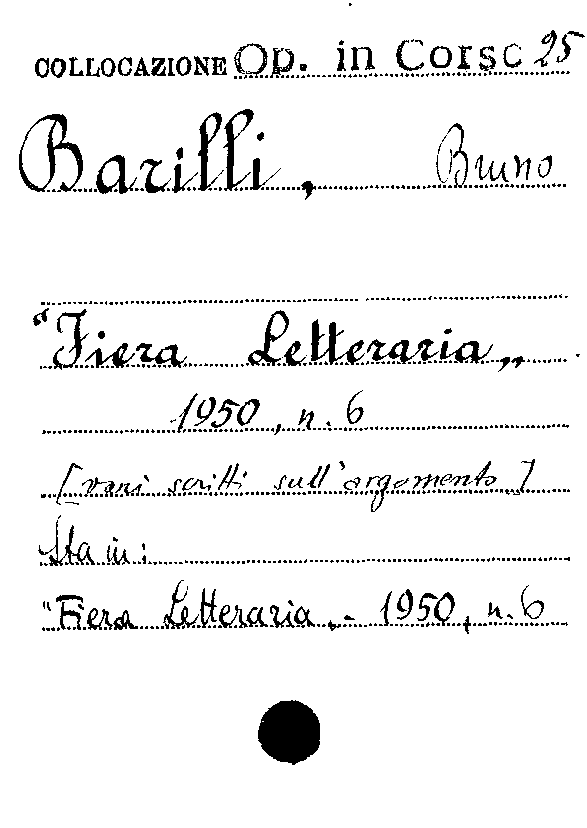 COLLOCAZIONE Op. in Corso 25
Barilli, Bruno
"Fiera Letteraria„
1950, n. 6
[vari scritti sull'argomento]
Sta in:
"Fiera Letteraria„- 1950, n. 6